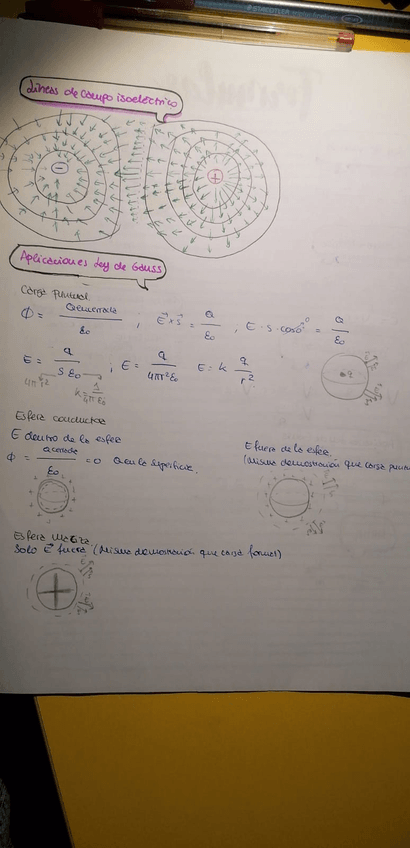 Líneas de campo isoeléctrico
−
+
Aplicaciones Ley de Gauss
Carga puntual
Φ = Qencerrada / ε₀ , E⃗ × S⃗ = Q / ε₀ , E · S · cos 0° = Q / ε₀
E = q / S ε₀ ; E = q / 4πr²ε₀ E = k q / r²
4πr² k = 1 / 4πε₀
q
Esfera conductora
E dentro de la esfera
Φ = qcerrada / ε₀ = 0 Q en la superficie.
E fuera de la esfera
(Misma demostración que carga
Esfera maciza
Solo E⃗ fuera (Misma demostración que carga